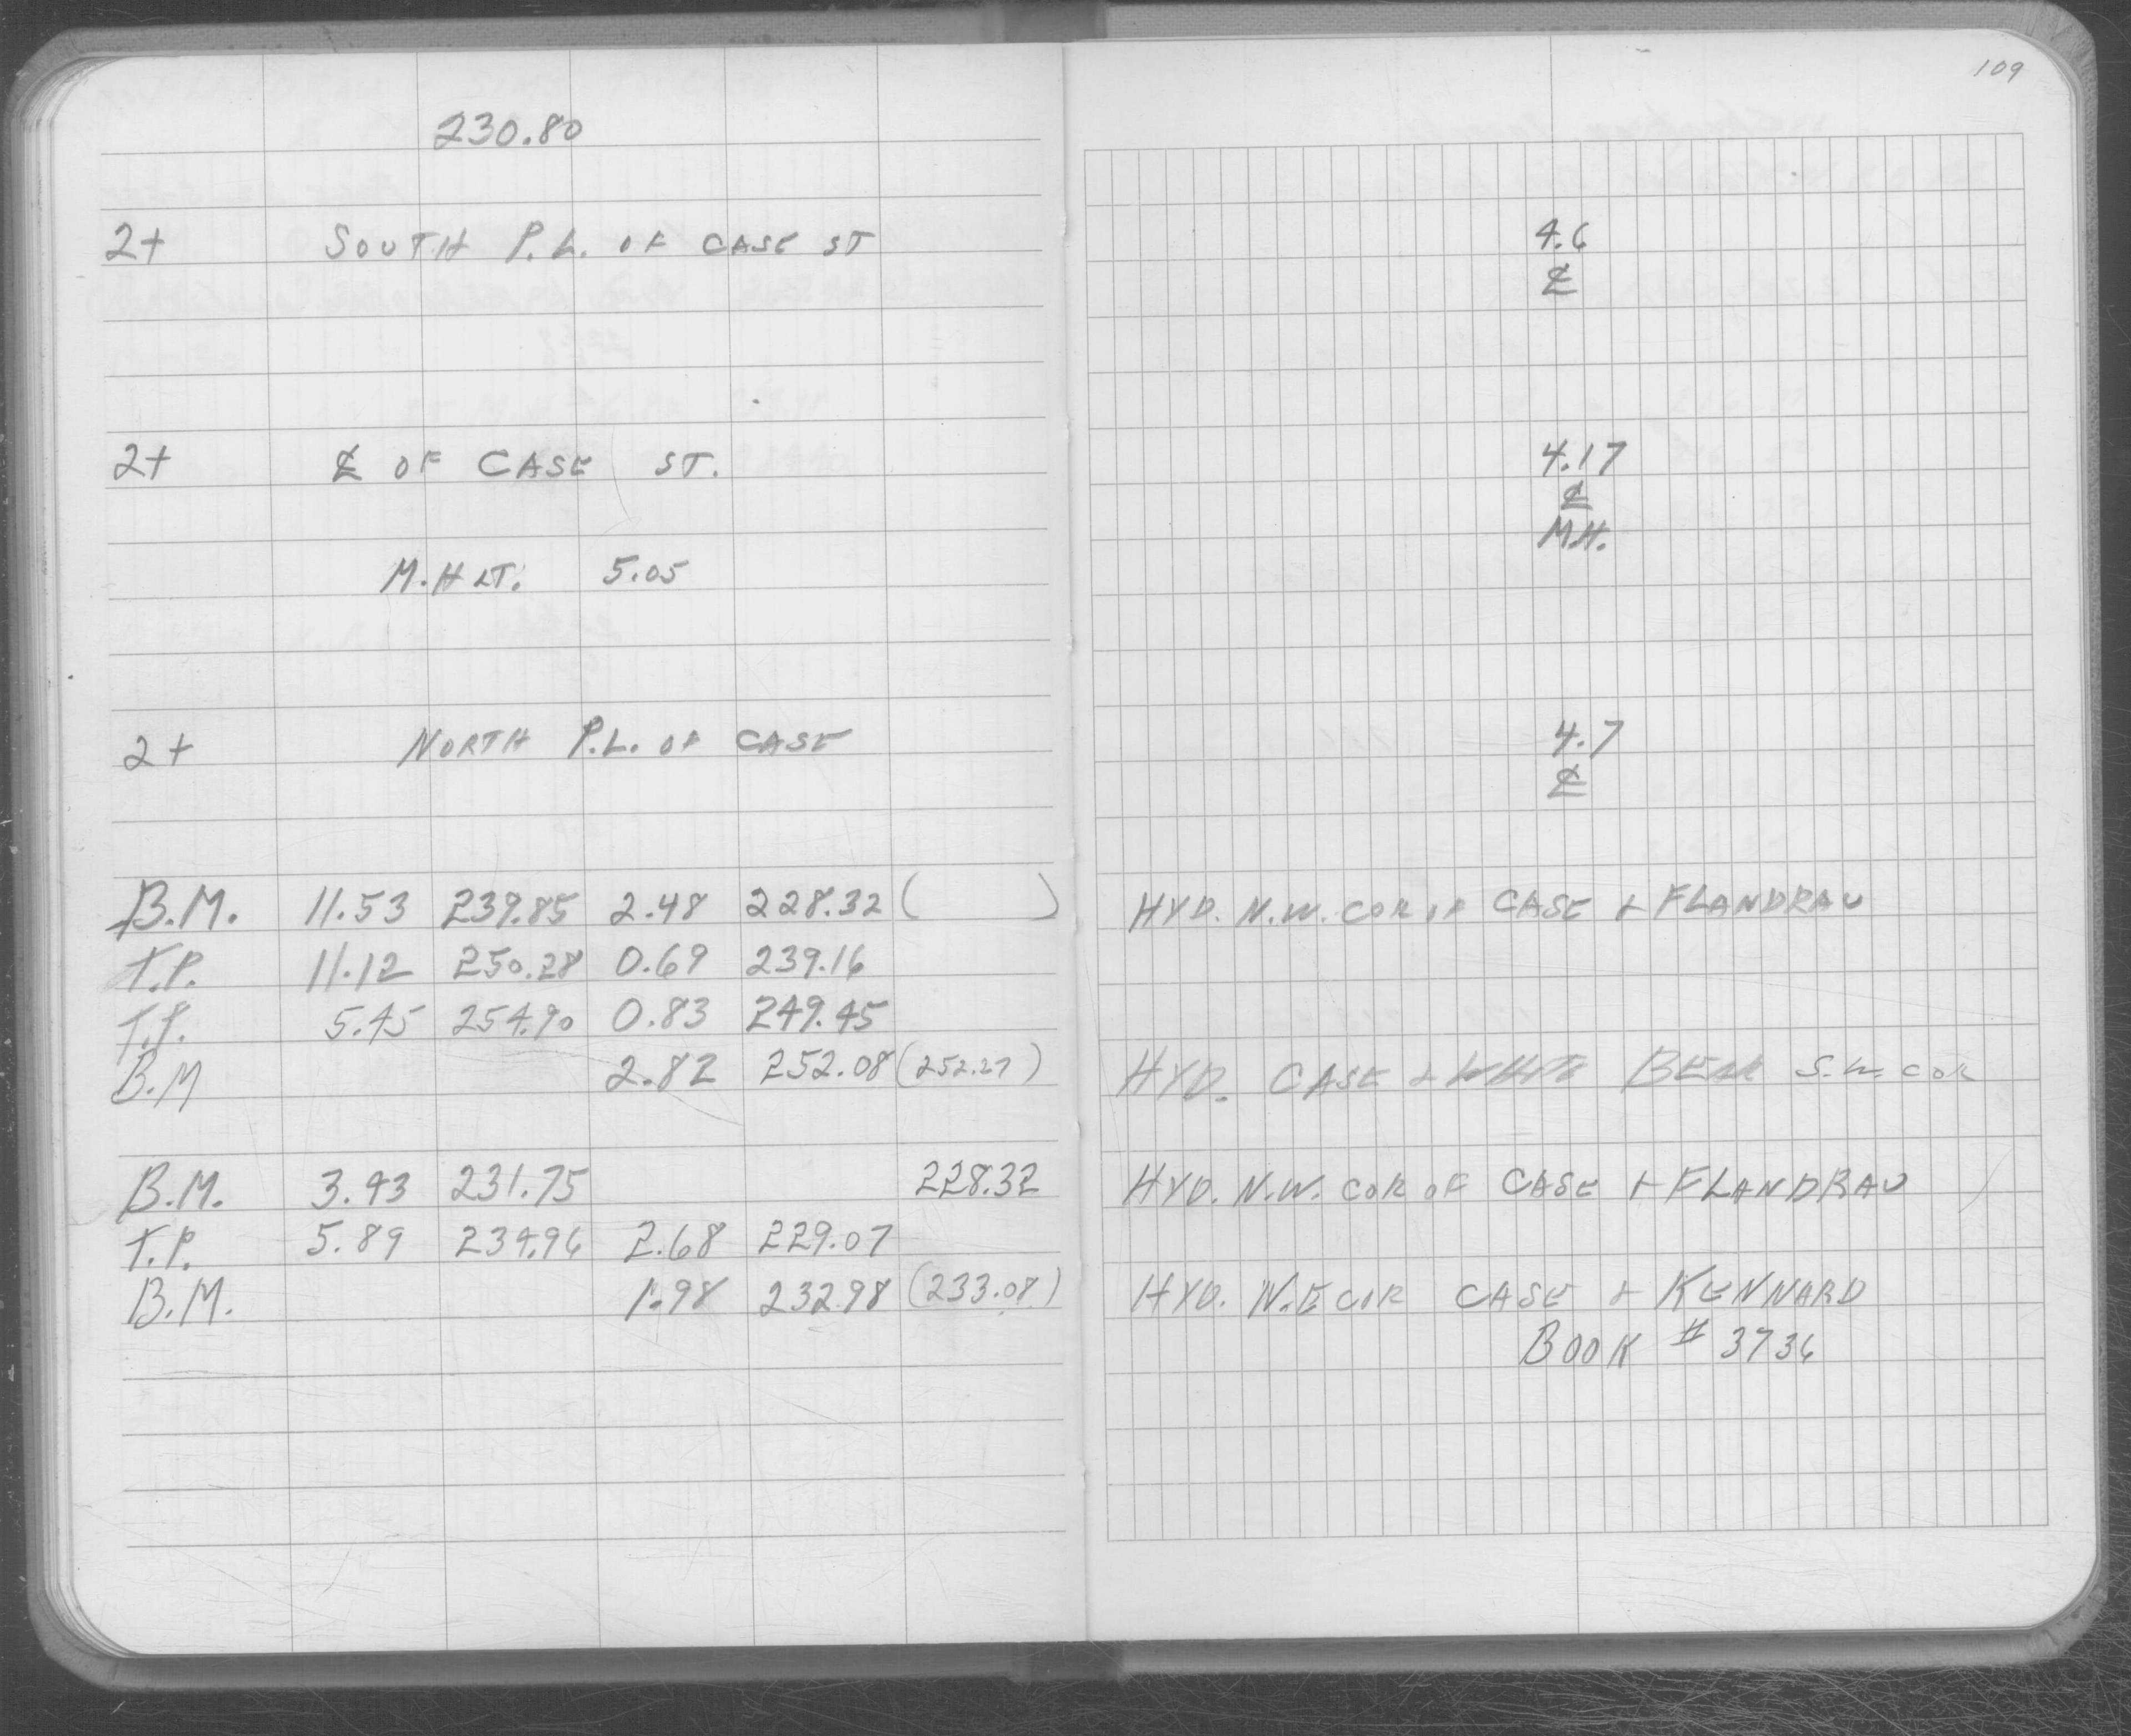 109
230.80
2+ SOUTH P.L. OF CASE ST 4.6
℄
2+ ℄ OF CASE ST. 4.17
℄
M.H.
M.H LT. 5.05
2+ NORTH P.L. OF CASE 4.7
℄
B.M. 11.53 239.85 2.48 228.32 ( ) HYD. N.W. COR OF CASE & FLANDRAU
T.P. 11.12 250.28 0.69 239.16
T.P. 5.45 254.90 0.83 249.45
B.M 2.82 252.08 (252.27) HYD. CASE & WHITE BEAR S.W. COR
B.M. 3.43 231.75 228.32 HYD. N.W. COR OF CASE & FLANDRAU
T.P. 5.89 234.96 2.68 229.07
B.M. 1.98 232.98 (233.08) HYD. N.E COR CASE & KENNARD
BOOK # 3736